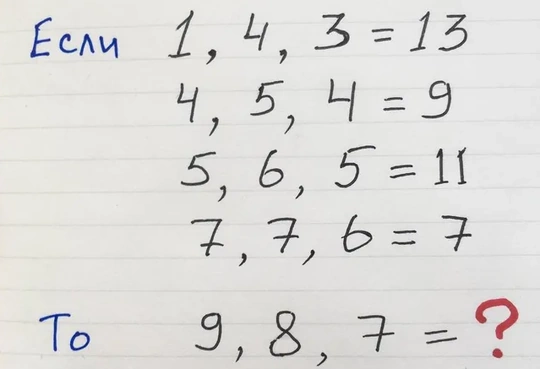 Если 1, 4, 3 = 13
4, 5, 4 = 9
5, 6, 5 = 11
7, 7, 6 = 7
То 9, 8, 7 = ?